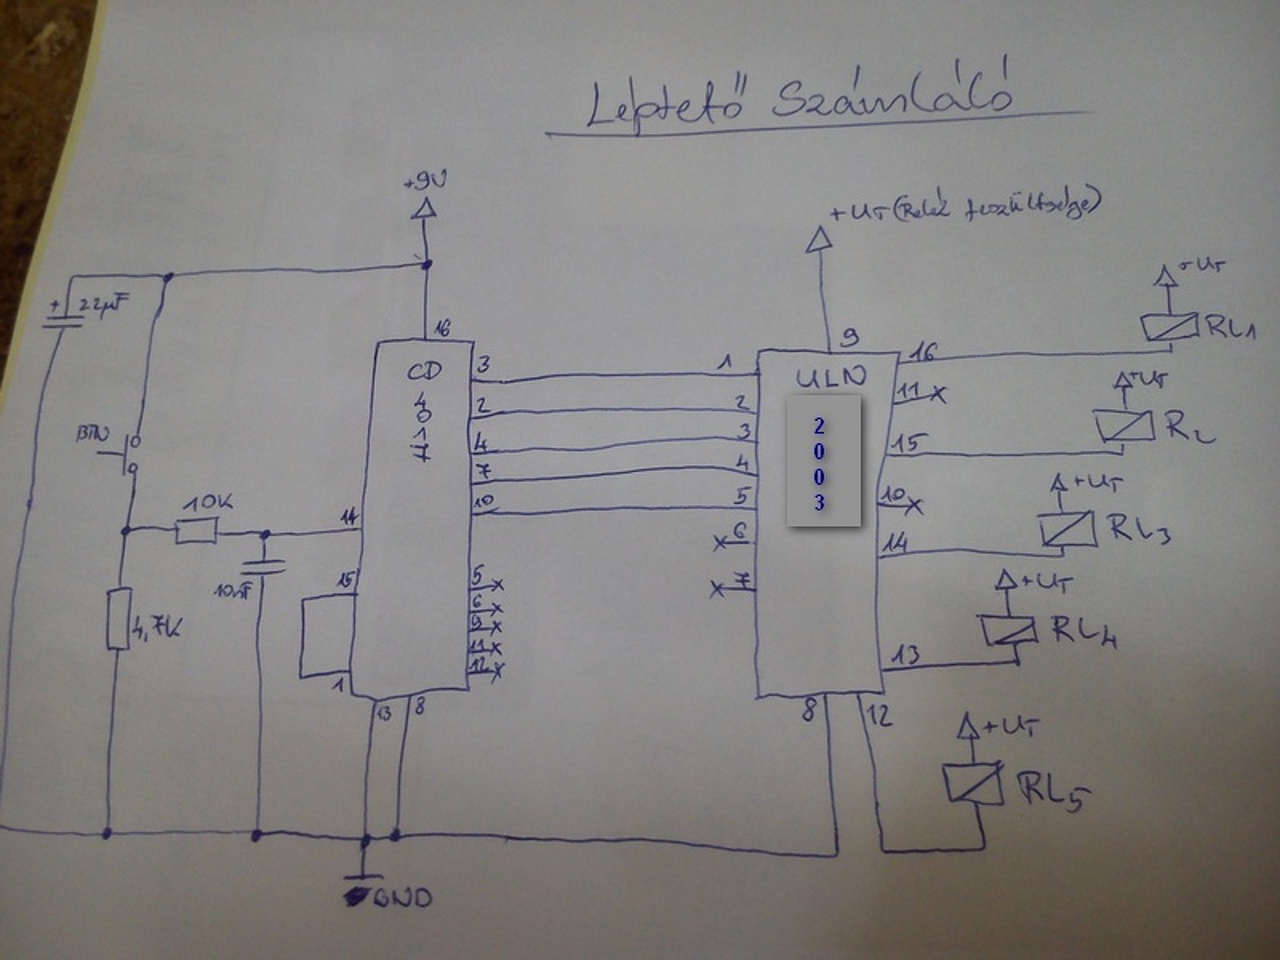 Léptető Számláló
+9V
+UT (Relé feszültsége)
+UT
+ 22µF
16
9
RL1
CD
4
0
1
7
3
1
ULN
2
0
0
3
16
11
+UT
2
2
15
RL
BTN
4
3
7
4
10
+UT
10K
10
5
14
6
14
RL3
10nF
15
5
7
+UT
6
4,7K
9
RL4
11
13
12
1
13
8
8
12
+UT
RL5
GND